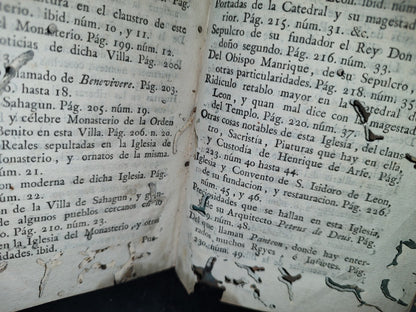 pintura en el claustro de este
ibid. núm. 10, y 11.
Monasterio. Pág. 199. núm. 12.
oticias de dicha Villa. Pág.
llamado de Benevivere. Pág. 203.
hasta 18.
Sahagun. Pág. 205. núm. 19.
y célebre Monasterio de la Orden
Benito en esta Villa. Pág. 206. n. 20.
Reales sepultadas en la Iglesia de
Monasterio, y ornatos de la misma.
núm. 21.
on, moderna de dicha Iglesia. Pág.
núm. 22.
n de la Villa de Sahagun, y
de algunos pueblos cercanos
Pág. 210. núm. 23.
en la Iglesia del Monasterio, y otras
idades. ibid.
Portadas de la Catedral y su magestad
rior. Pág. 215. núm. 31. &c.
Sepulcro de su fundador el Rey Don
doño segundo. Pág. 216. núm. 33.
Del Obispo Manrique, de su Sepulcro
otras particularidades. Pág. 218. núm.
Ridiculo retablo mayor en la Catedral de
Leon, y quan mal dice con la magestad
del Templo. Pág. 220. núm. 37.
Otras cosas notables de esta Iglesia, del claus-
tro, Sacristía, Pinturas que hay en ella,
y Custodia de Henrique de Arfe. Pág.
223. núm 40 hasta 44.
Iglesia y Convento de S. Isidoro de Leon,
su fundacion, y restauracion. Pág. 226.
núm. 45, y 46.
que se hallan en esta Iglesia,
su Arquitecto Petrus de Deus. Pág.
que llaman Panteon, donde hay enter-
rados, muchos Reyes, é Infantes. Pág.
230. núm. 49.